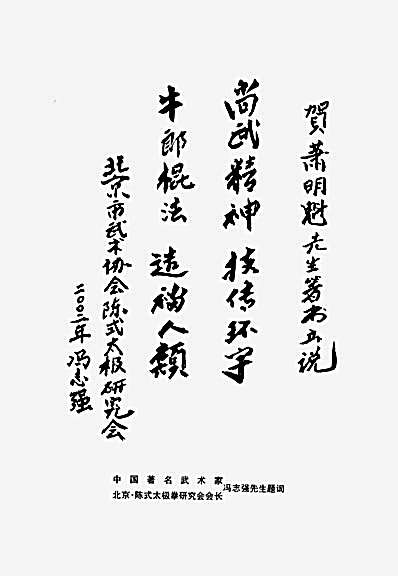 賀萧明魁先生著书立说
尚武精神 技传环宇
牛郎棍法 造福人類
北京市武术协会陈式太极研究会
二〇〇二年 冯志强
中国著名武术家
北京·陈式太极拳研究会会长
冯志强先生题词